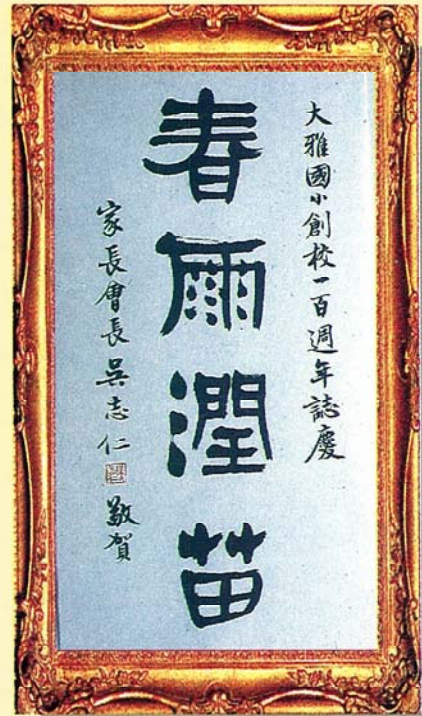 大雅國小創校一百週年誌慶
春雨潤苗
家長會長吳志仁敬賀